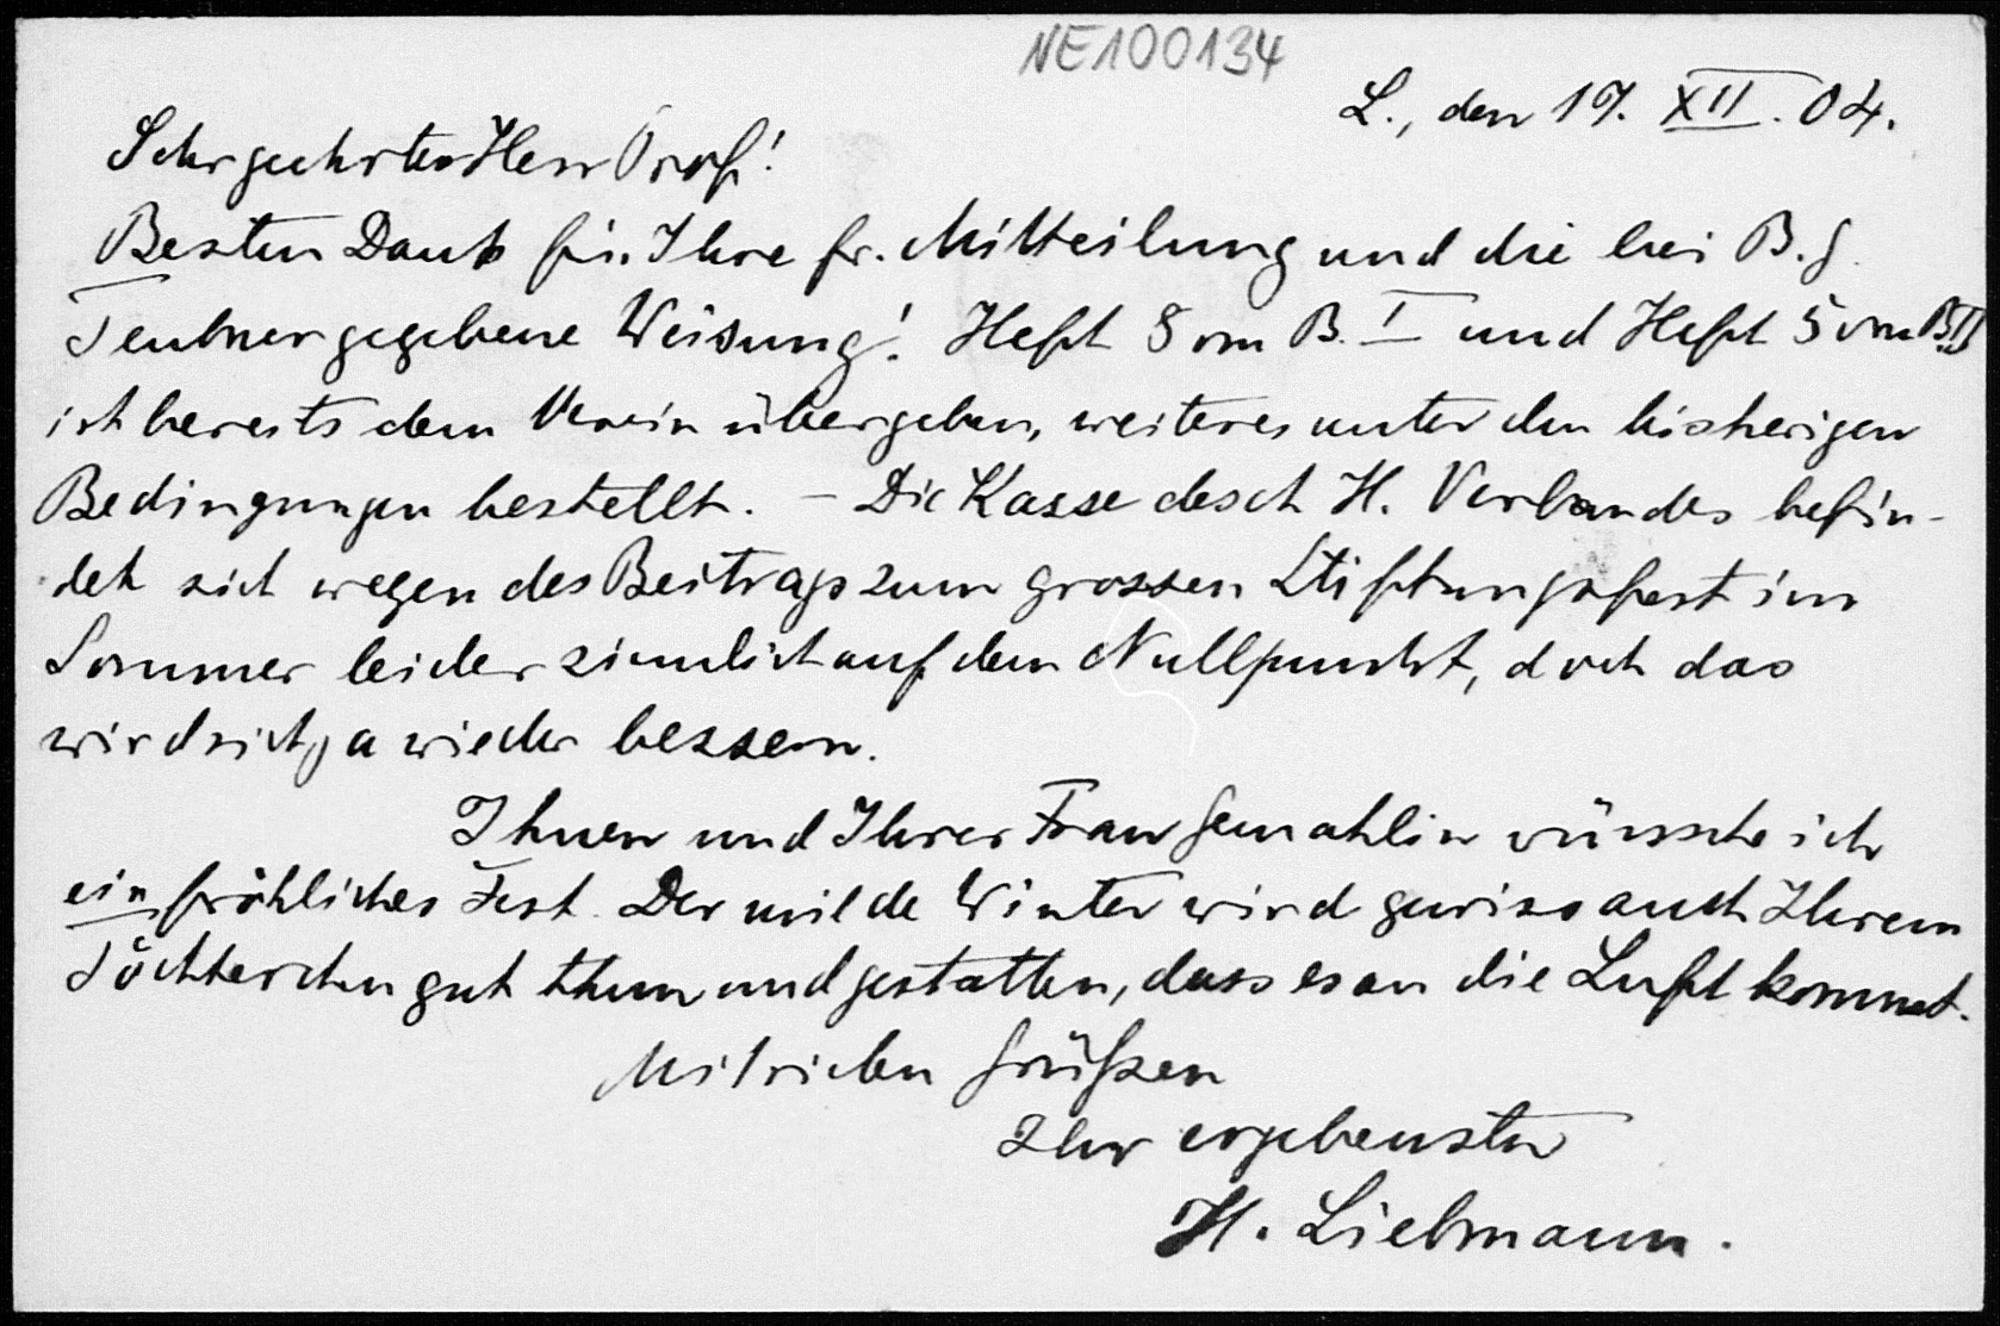 NE100134
L., den 19. XII. 04.
Sehr geehrter Herr Prof!
Besten Dank für Ihre fr. Mitteilung und die bei B. G.
Teubner gegebene Weisung! Heft 8 vom B. I und Heft 5 vom B. II
ist bereits dem Verein übergeben, weiteres unter den bisherigen
Bedingungen bestellt. – Die Kasse des H. Verbandes befin-
det sich wegen des Beitrags zum grossen Stiftungsfest im
Sommer leider ziemlich auf dem Nullpunkt, doch das
wird sich ja wieder bessern.
Ihnen und Ihrer Frau Gemahlin wünsche ich
ein fröhliches Fest. Der milde Winter wird gewiss auch Ihrem
Töchterchen gut thun und gestatten, dass es an die Luft kommt.
Mit vielen Grüßen
Ihr ergebenster
H. Liebmann.